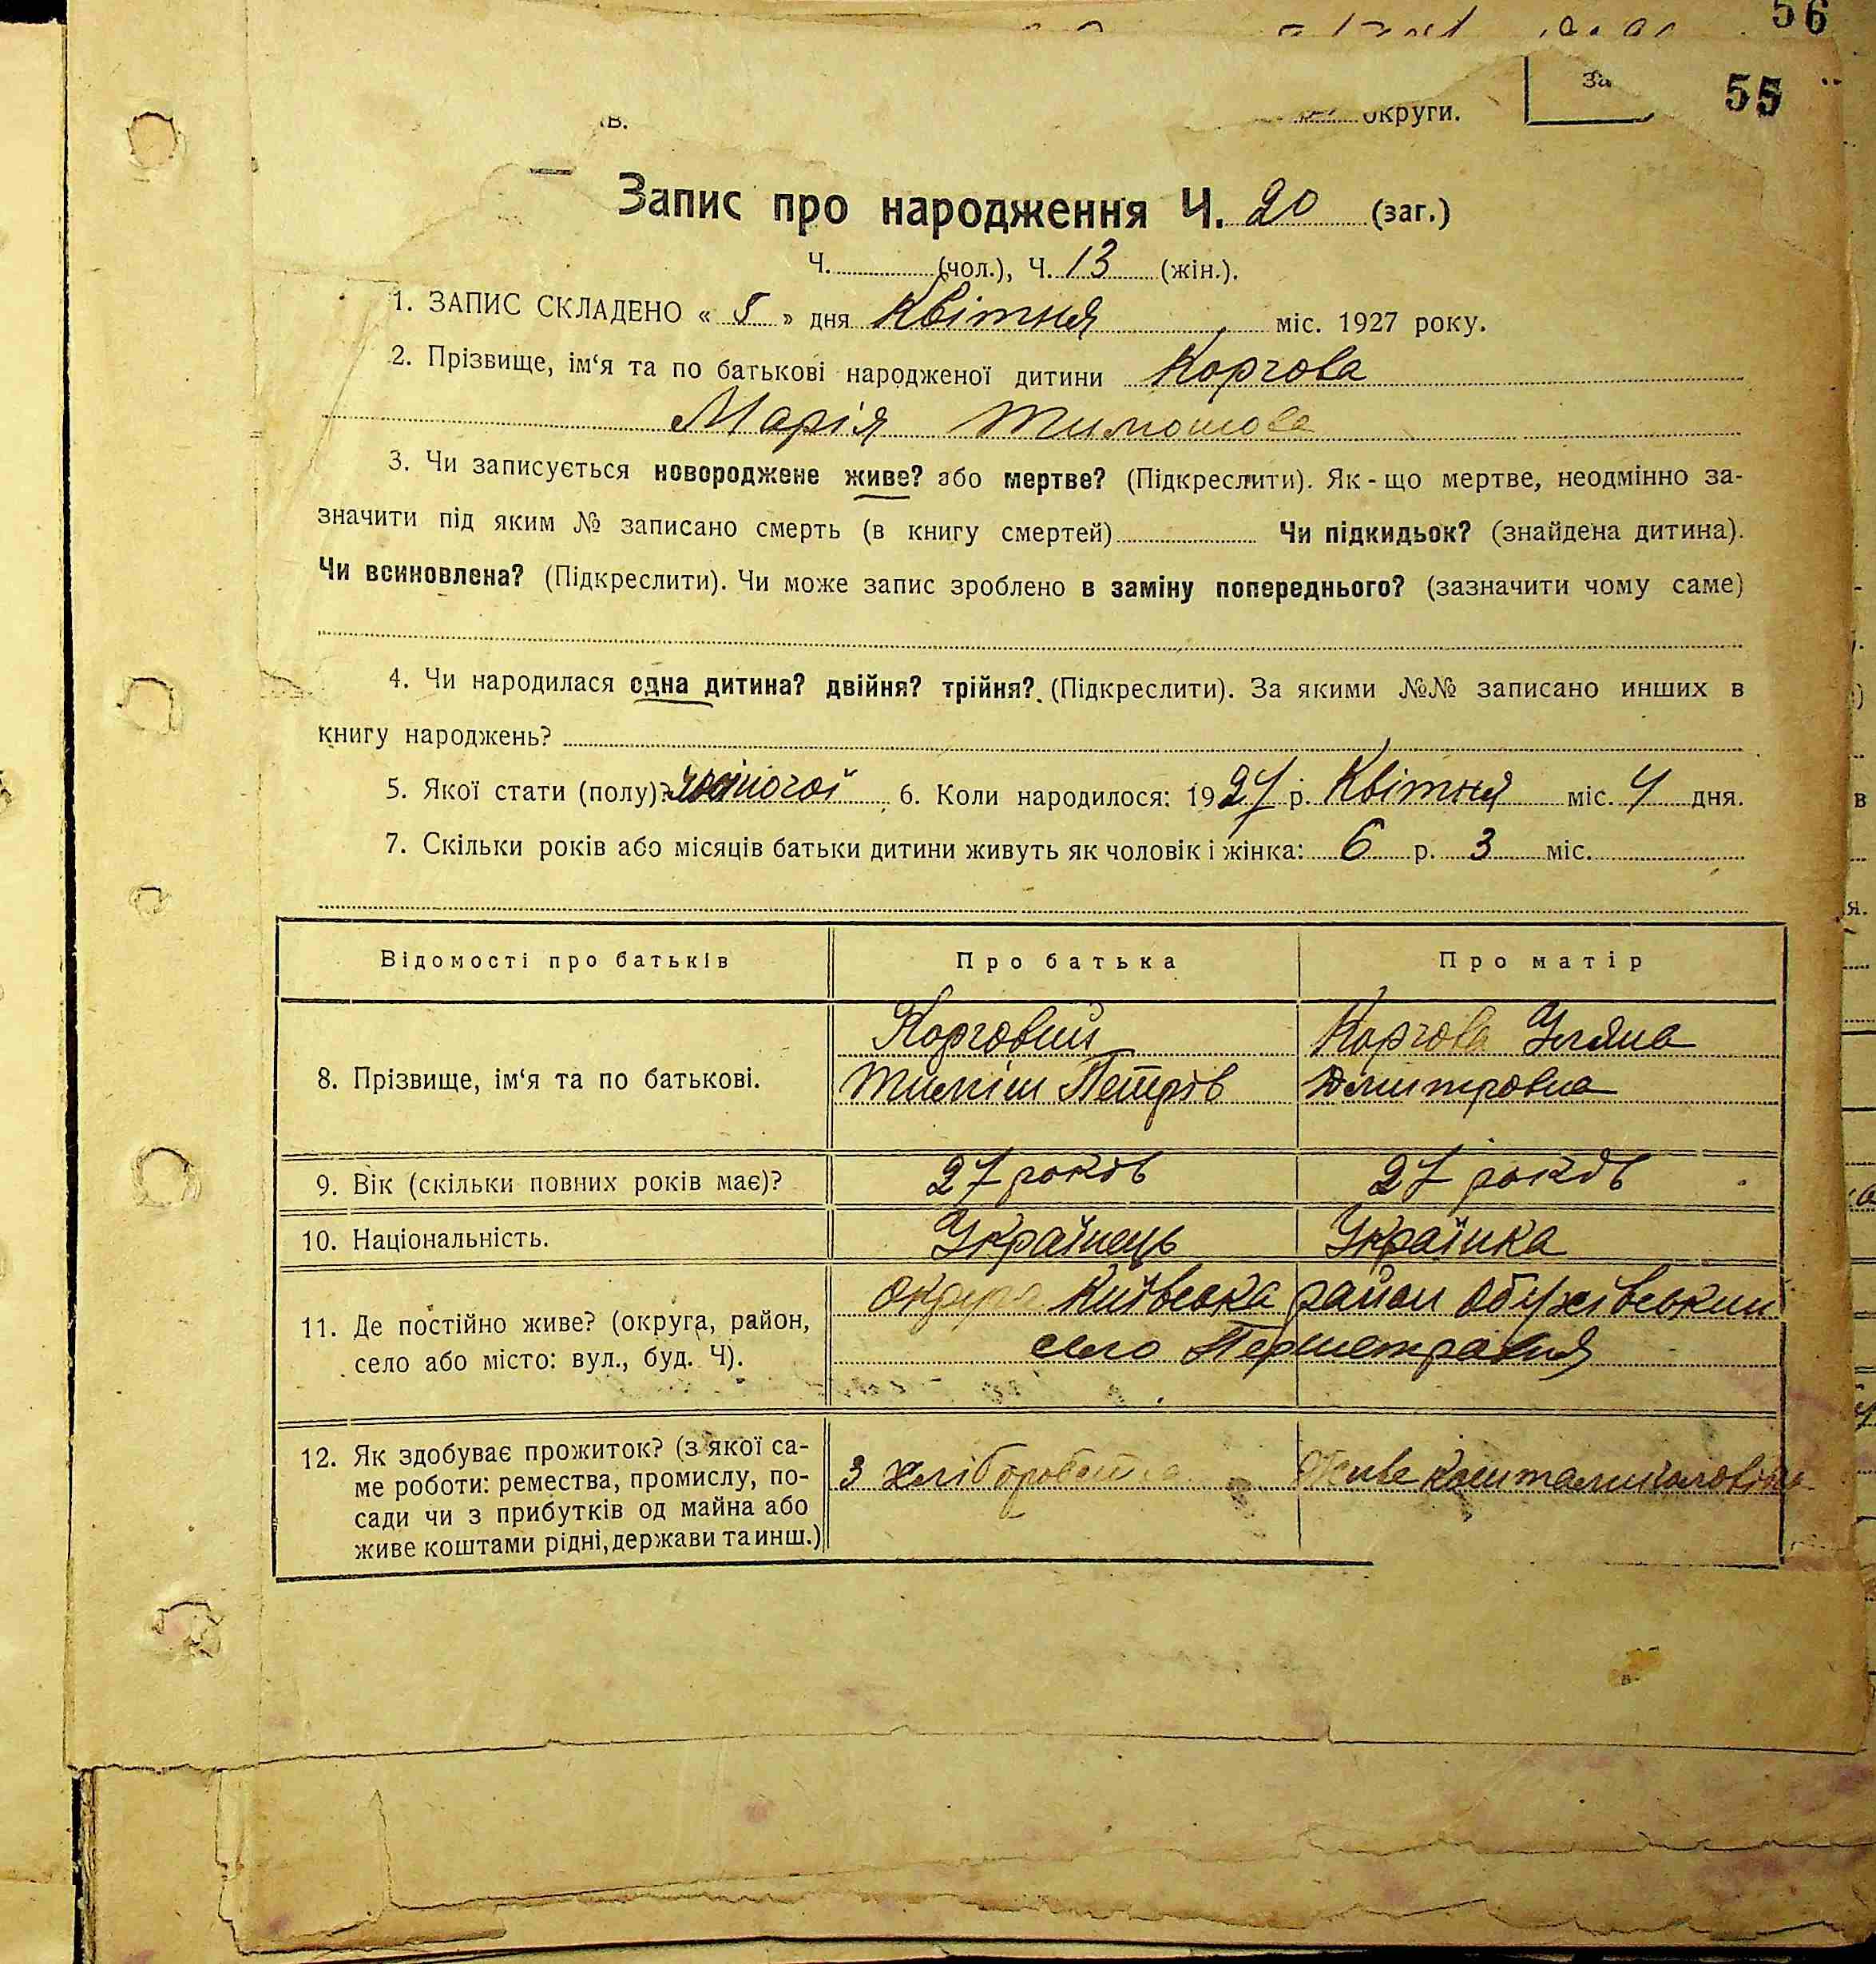 56
За
55
округи.
Запис про народження Ч. 20 (заг.)
Ч. (чол.), Ч. 13 (жін.).
1. ЗАПИС СКЛАДЕНО « 5 » дня Квітня міс. 1927 року.
2. Прізвище, ім‘я та по батькові народженої дитини Коргова
Марія Тимошова
3. Чи записується новороджене живе? або мертве? (Підкреслити). Як-що мертве, неодмінно за-
значити під яким № записано смерть (в книгу смертей) Чи підкидьок? (знайдена дитина).
Чи всиновлена? (Підкреслити). Чи може запис зроблено в заміну попереднього? (зазначити чому саме)
4. Чи народилася одна дитина? двійня? трійня? (Підкреслити). За якими №№ записано инших в
книгу народжень?
5. Якої стати (полу)? 6. Коли народилося: 1927 р. Квітня міс. 4 дня.
7. Скільки років або місяців батьки дитини живуть як чоловік і жінка: 6 р. 3 міс.
Відомості про батьків Про батька Про матір
8. Прізвище, ім‘я та по батькові.
Корговий Коргова Уляна
Тиміш Петрів Дмитровна
9. Вік (скільки повних років має)? 27 років 27 років
10. Національність. Українець Українка
11. Де постійно живе? (округа, район,
село або місто: вул., буд. Ч).
Округа Київська район Обухівський
село
12. Як здобуває прожиток? (з якої са-
ме роботи: ремества, промислу, по-
сади чи з прибутків од майна або
живе коштами рідні, держави та инш.)
З хліборобства Живе коштами чоловіка